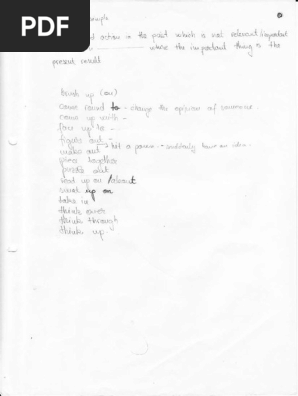 PDF
action in the past which is not relevant/important
where the important thing is the
present result
brush up (on)
come round to - change the opinion of someone
come up with -
face up to -
figure out -
make out
hit a person - suddenly have an idea.
piece together
puzzle out
read up on /about
swot up on
take in
think over
think through
think up